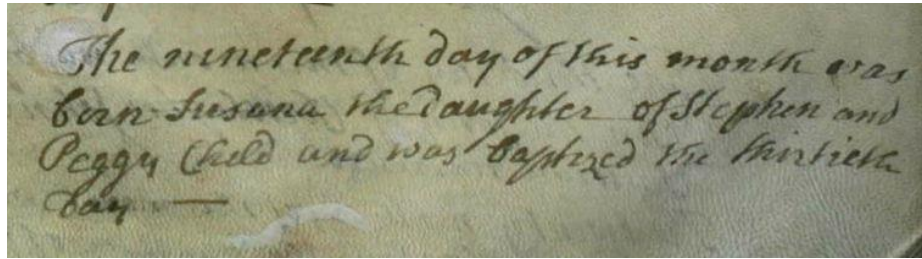 The nineteenth day of this month was
born Susana the Daughter of Stephen and
Peggy Cheld and was baptized the thirtieth
day —